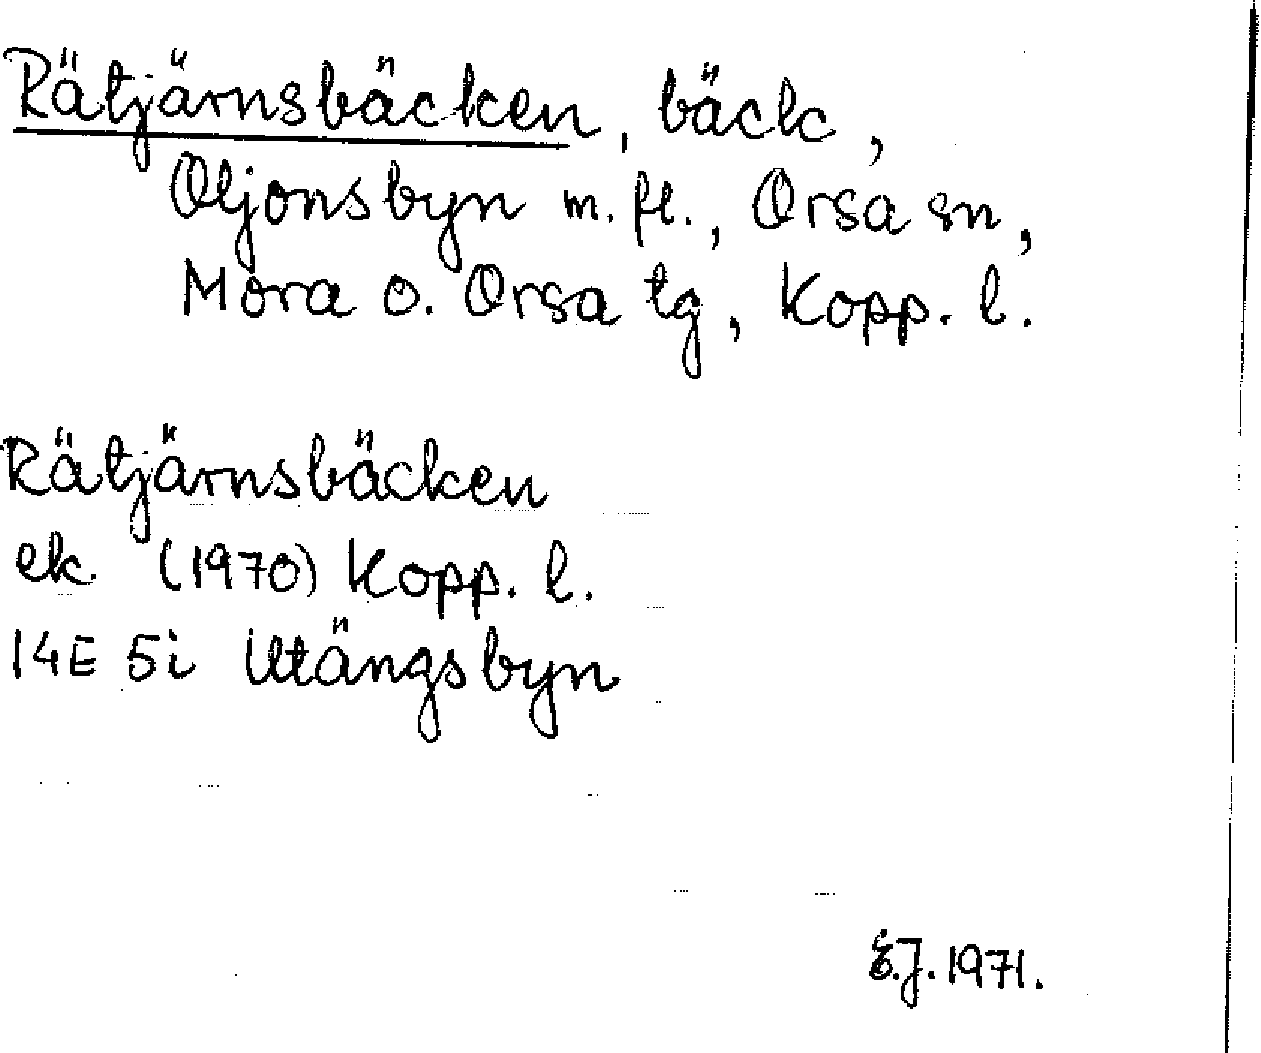 Rätjärnsbäcken, bäck,
Oljonsbyn m.fl., Orsa sn,
Mora o. Orsa tg, Kopp. l.
Rätjärnsbäcken
ek (1970) Kopp. l.
14E 5i Utängsbyn
E.J. 1971.